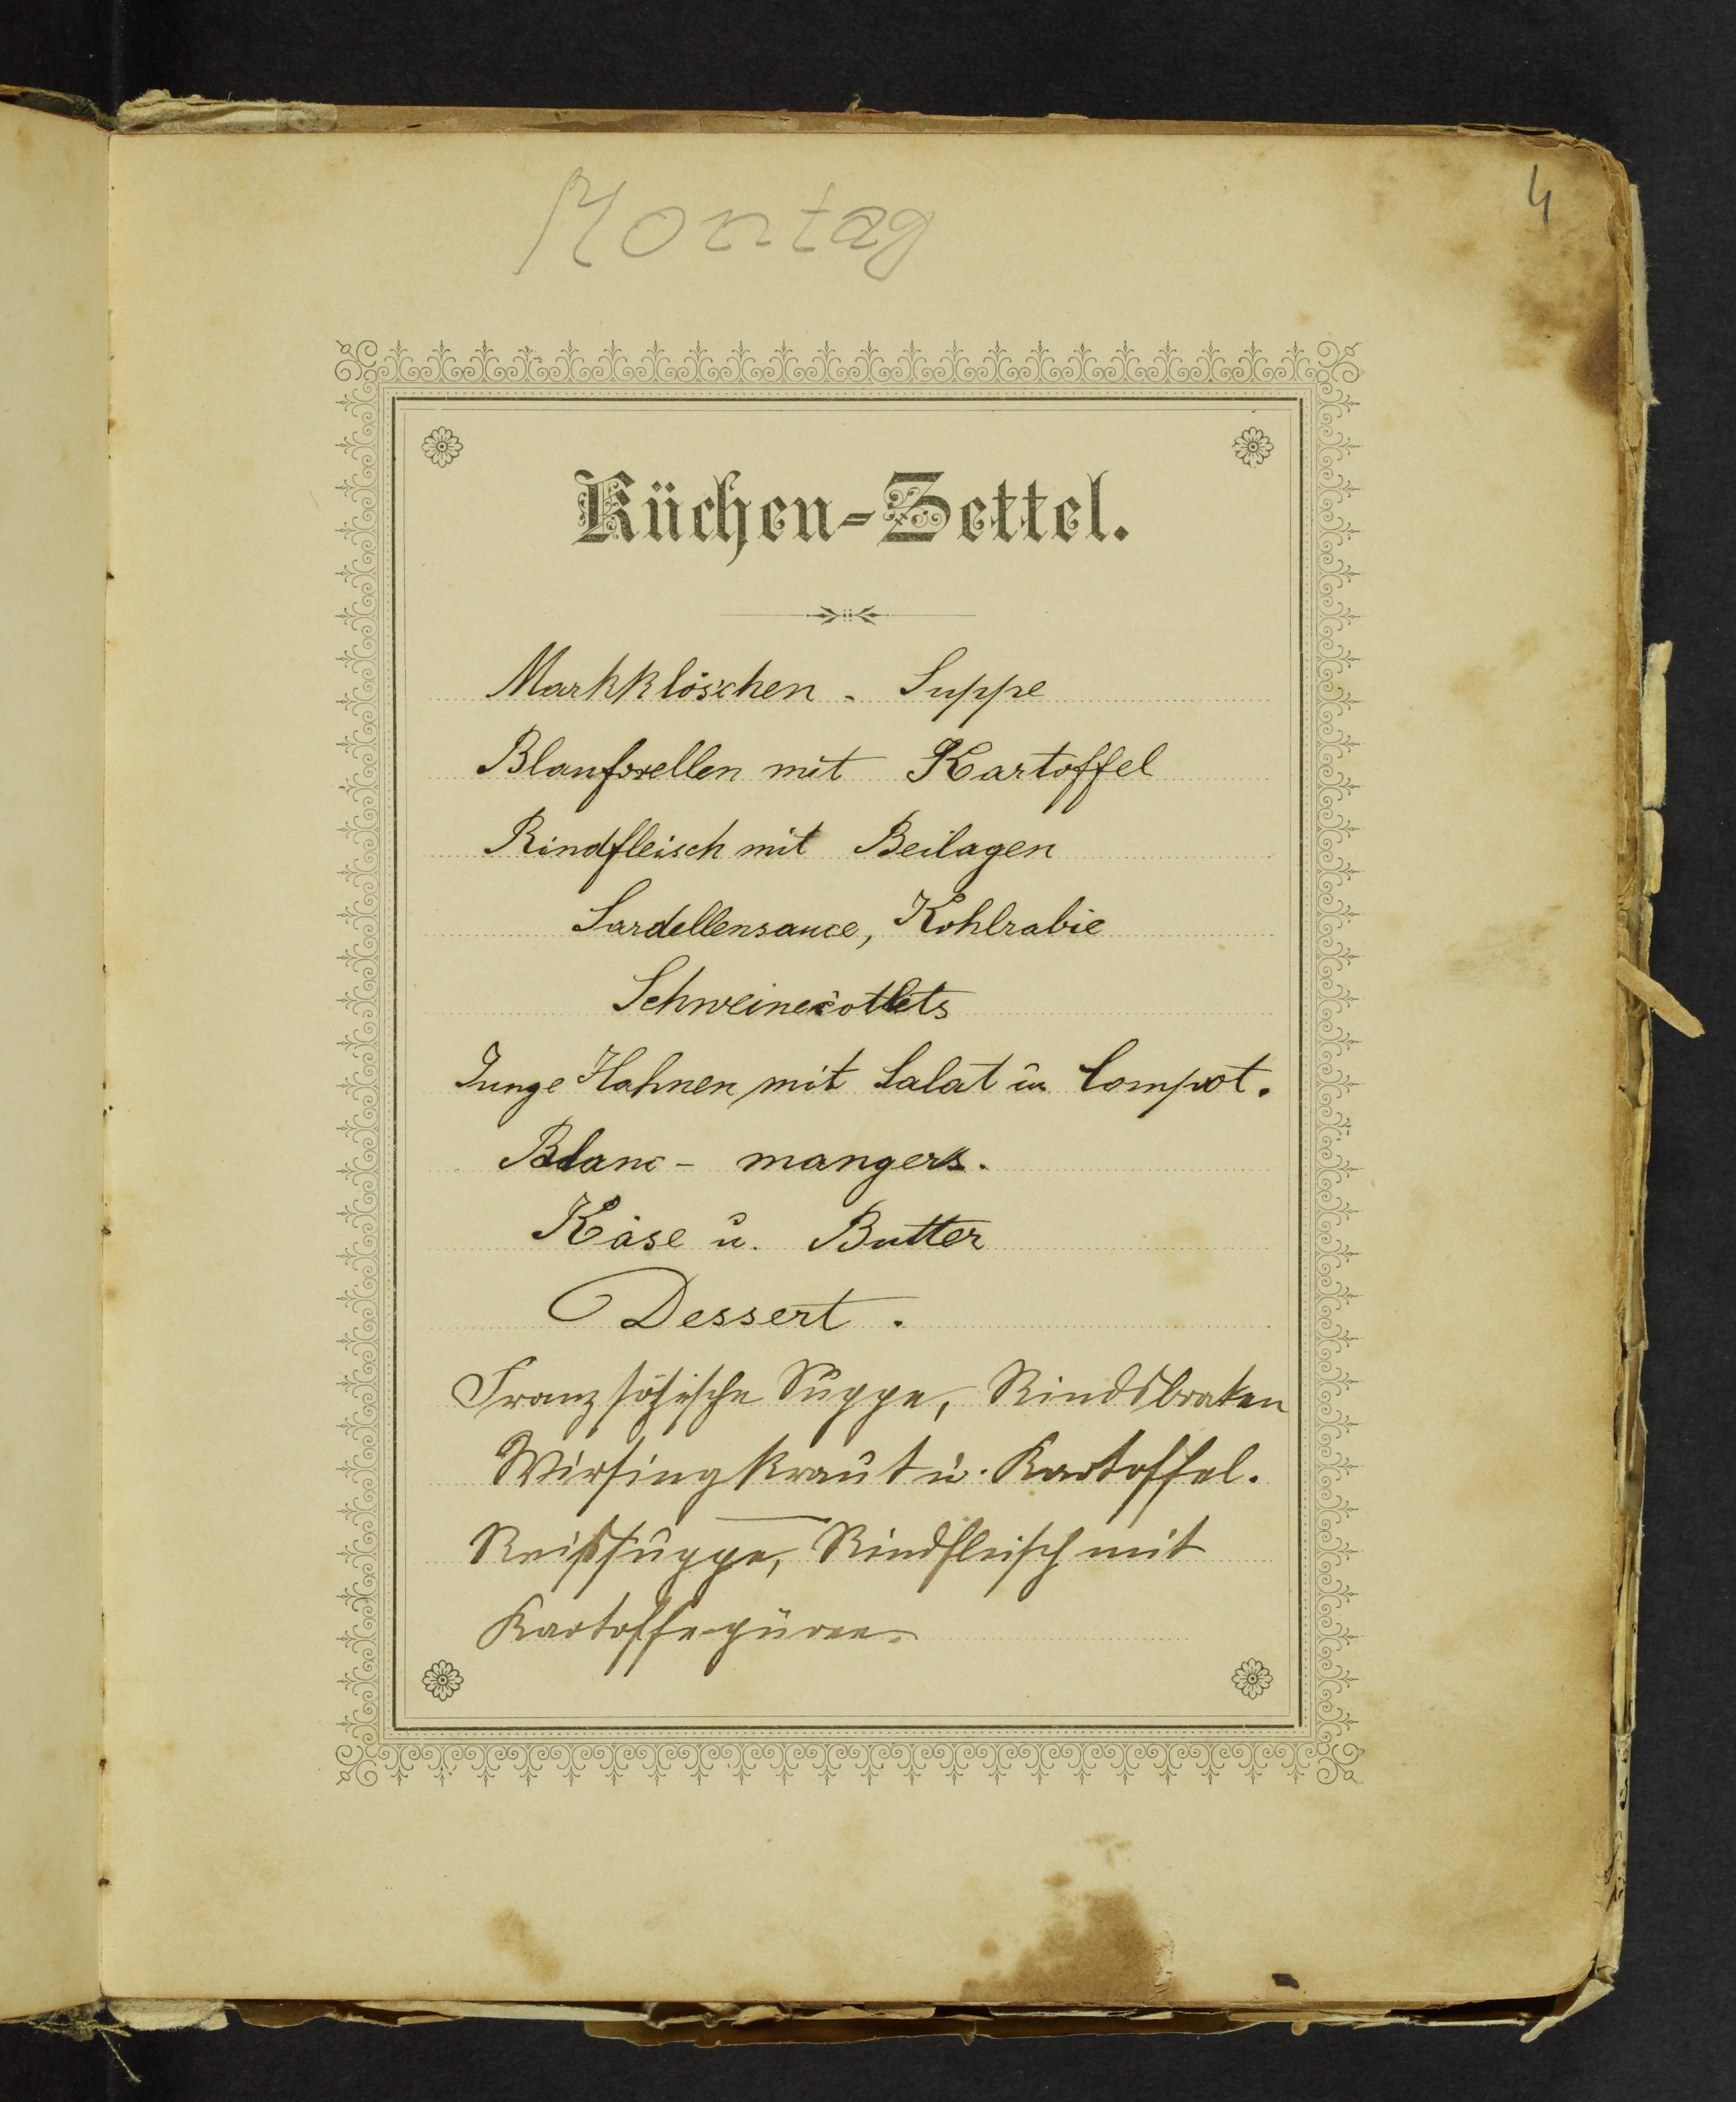 4
Montag
Küchen-Zettel.
Markklöschen - Suppe
Blauforellen mit Kartoffel
Rindfleisch mit Beilagen
Sardellensauce, Kohlrabie
Schweinecotlets
Junge Hahnen mit Salat u Compot.
Blanc - mangers.
Käse u. Butter
Dessert.
Franzsösische Suppe, Rindsbraten
Wirsingkraut u. Kartoffel.
Reissuppe, Rindfleisch mit
Kartoffepüree.